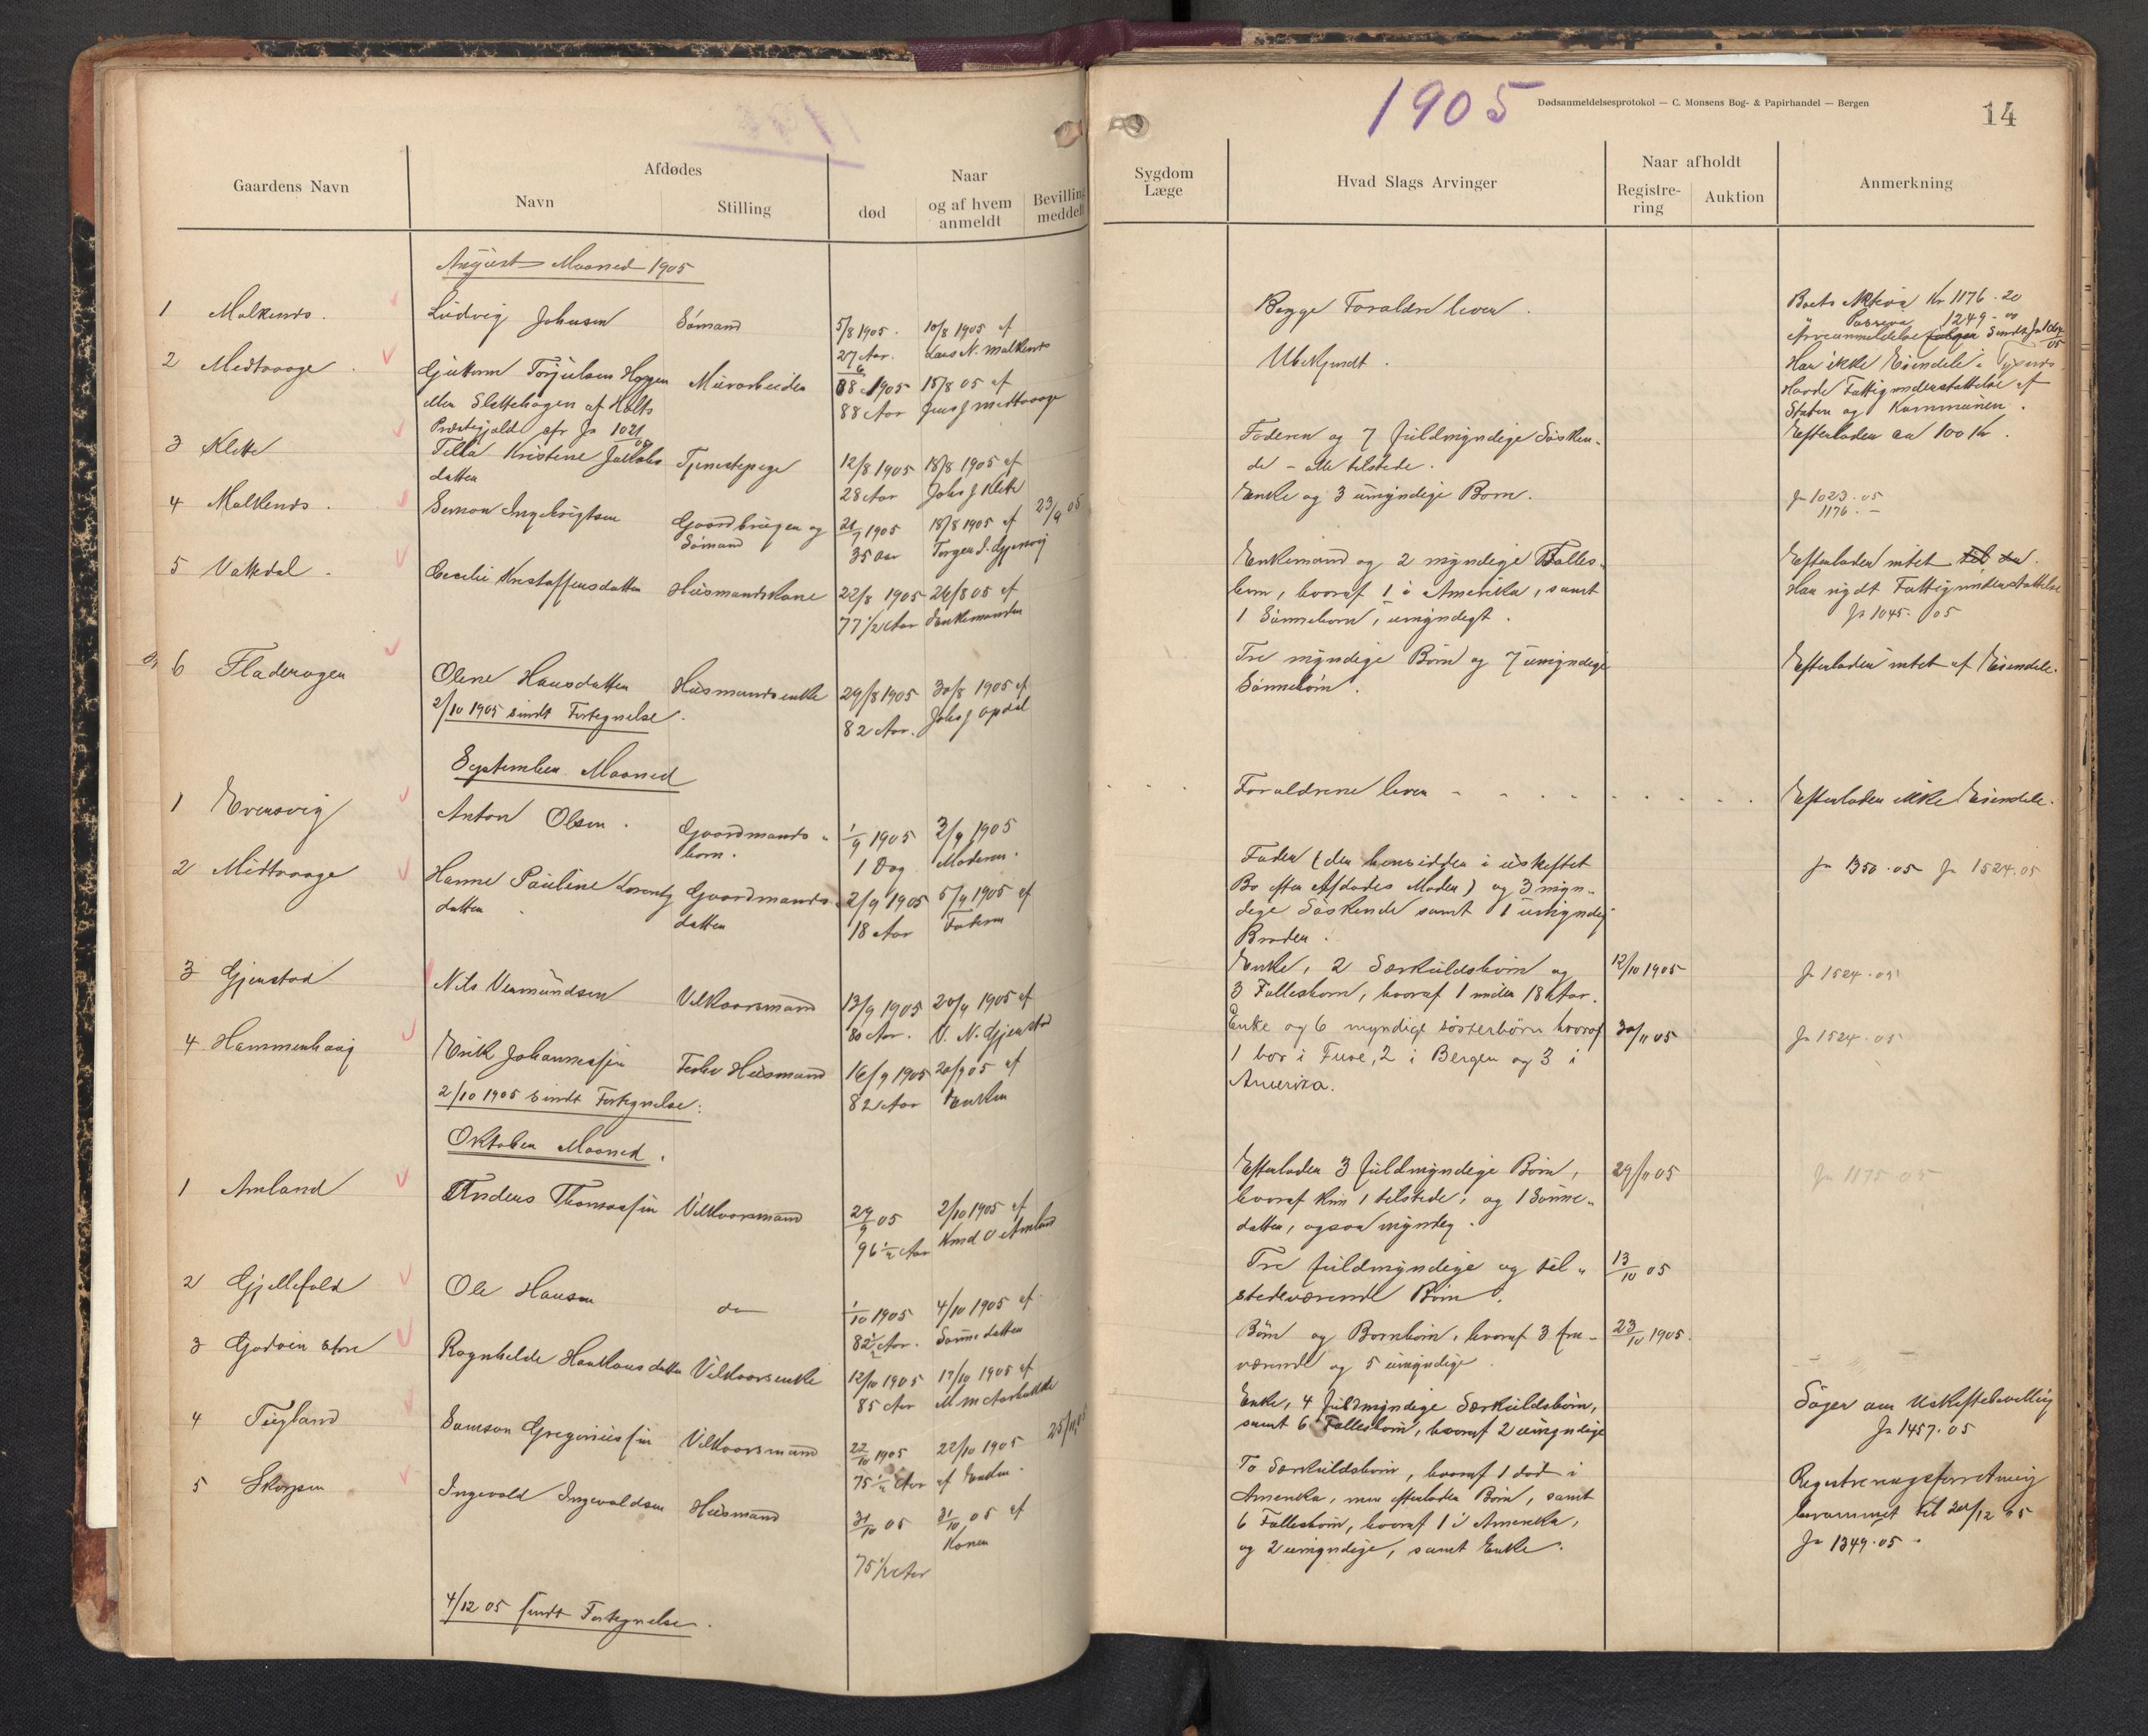 1905
Dødsanmeldelsesprotokol — C. Monsens Bog- & Papirhandel — Bergen
14
Gaardens Navn
Afdødes
Navn
Stilling
Naar
død
og af hvem anmeldt
Bevilling meddelt
Sygdom Læge
Hvad Slags Arvinger
Naar afholdt
Registre-ring
Auktion
Anmerkning
August Maaned 1905
1 Malkenes. Ludvig Johnsen Sömand 5/8 1905. 10/8 1905 af Begge Forældre lever. Boets Aktiva Kr 1176.20
27 Aar. Lars N. Malkenes Passiva 1249
2 Midtvaage Murarbeider 1905 15/8 05 af Ubekjendt. Har ikke Eiendele
eller Slettehagen af Holts 88 Aar Jens J Midtvaage Havde Fattigunderstøttelse af
Præstegjæld Staten og Kommunen.
3 Klette Kristine Jakobs Tjenestepige 12/8 1905 18/8 1905 af Faderen og 7 fuldmyndige Søsken- Efterlader ca 100 Kr.
datter 28 Aar Johs J Klette de – alle tilstede.
4 Malkenes. Ingebrigtsen Gaardbruger og 1905 18/8 1905 af 23/9 05 Enke og 3 umyndige Børn. Jr 1023.05
Sömand 35 Aar 1176. –
5 Vakdal. Cecilie Kristoffersdatter Husmandskone 22/8 1905 26/8 05 af Enkemand og 2 myndige Fælles- Efterlader intet
77 1/2 Aar Enkemanden børn, hvoraf 1 i Amerika, samt Har nydt Fattigunderstøttelse
1 Sønnebarn, umyndigt. Jr 1045. 05
6 Fladerogen Olene Hansdatter Husmandsenke 29/8 1905 30/8 1905 af Tre myndige Börn og 7 umyndige Efterlader intet af Eiendele.
2/10 1905 sendt Fortegnelse. 82 Aar. Johs J Opdal Sønnebörn.
September Maaned
1 Evensvig Anton Olsen. Gaardmands- 1/9 1905 3/9 1905 Forældrene lever Efterlader ikke Eiendele.
barn. 1 Dag Moderen.
2 Midtvaage Hanne Pauline Gaardmands- 2/9 1905 5/9 1905 af Fader (der hensidder i uskiftet Jr 1350.05 Jr 1524.05
datter datter 18 Aar Faderen Bo efter Afdødes Moder) og 3 myn-
dige Søskende samt 1 umyndig
Broder.
3 Gjerstad Nils Vermundsen Vilkaarsmand 13/9 1905 20/9 1905 af Enke, 2 Særkuldsbörn og 12/10 1905 Jr 1524.05
80 Aar. V. N. Gjerstad 3 Fællesbørn, hvoraf 1 under 18 Aar.
4 Hammerhaug Erik Johannessen Husmand 16/9 1905 20/9 05 af Enke og 6 myndige Søsterbörn hvoraf 30/11 05 Jr 1524.05
2/10 1905 sendt Fortegnelse. 82 Aar Enken 1 bor i Fuse, 2 i Bergen og 3 i
Amerika.
Oktober Maaned.
1 Amland Anders Vilkaarsmand 29/9 05 2/10 1905 af Efterlader 3 fuldmyndige Börn, 29/11 05 Jr 1175 05
96 1/2 Aar Knud O Amland hvoraf kun 1 tilstede, og 1 Sönne-
datter, ogsaa myndig.
2 Gjellefald Ole Hansen do 1/10 1905 4/10 1905 af Tre fuldmyndige og til- 13/10 05
82 1/2 Aar. Sönnedatter stedeværende Börn.
3 Godvin store Ragnhilde Haakonsdatter Vilkaarsenke 12/10 1905 17/10 1905 af Börn og Barnbörn, hvoraf 3 fra- 23/10 1905.
85 Aar værende og 5 umyndige.
4 Samson Gregoriussen Vilkaarsmand 22/10 1905 22/10 1905 Enke, 4 fuldmyndige Særkuldsbörn, Söger om Uskiftebevilling
75 1/2 Aar af Enken. samt 6 Fællesbörn, hvoraf 2 umyndige Jr 1457.05
5 Skorpen Ingevald Ingevaldsen Husmand 31/10 05 31/10 05 af To Særkuldsbörn, hvoraf 1 död i Registreringsforretning
75 1/2 Aar Konen Amerika, men efterlader Börn, samt berammet til 20/12 05
6 Fællesbörn, hvoraf 1 i Amerika, Jr 1349.05
og 2 umyndige, samt Enke.
4/12 05 sendt Fortegnelse.